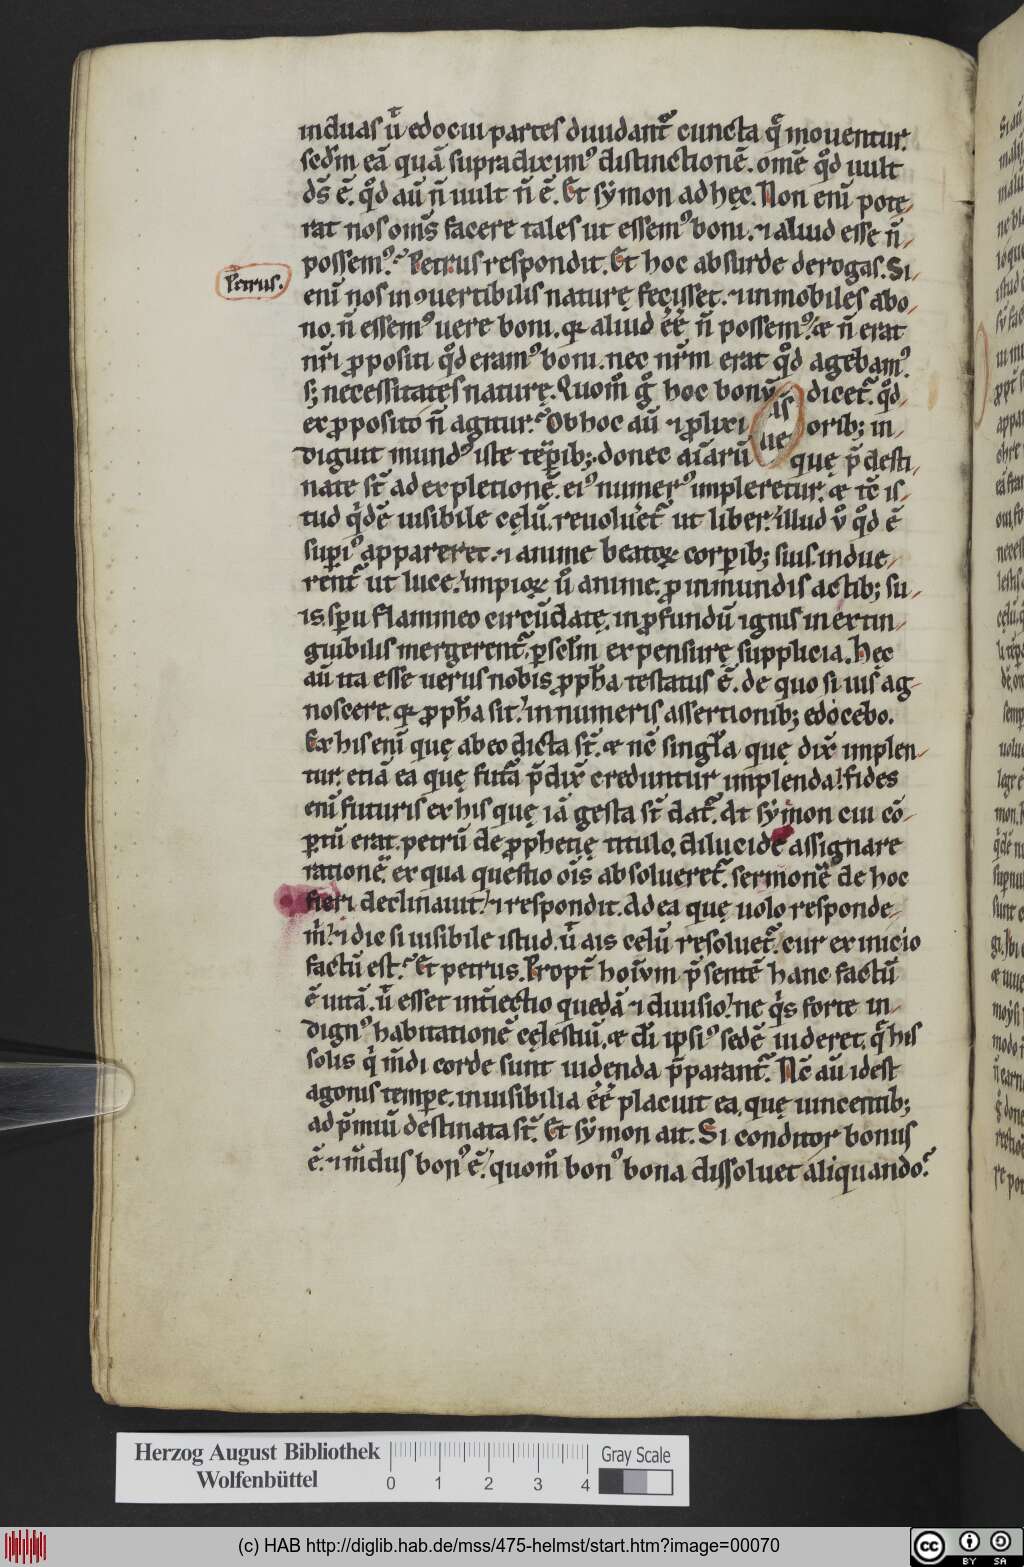 in duas ut̄ edociu partes diuidant᷑ cuncta q̄ mouentur.
sedm̄ eā quā supra diximꝰ distinctionē. om̄e qd̊ uult
ds̄ ē. qd̊ aū n̄ uult n̄ ē. Et sẏmon ad hęc. Non enī pote-
rat nos om̄s facere tales ut essemꝰ boni. ⁊ aliud esse n̄
possemꝰ? Petrus respondit. Et hoc absurde derogas. Si
Petrus.
enī nos inꝯuertibilis naturę fecisset. ⁊ inmobiles a bo-
no. n̄ essemꝰ uere boni. qꝛ aliud ee̅ n̄ possemꝰ. & n̄ erat
nr̄i ꝓpositi qd̊ eramꝰ boni. nec nr̄m erat qd̊ agebamꝰ.
sꝫ necessitatęs naturę. Quom̊ g̊ hoc bonū dicet᷑. qd̊
ex ꝓposito n̄ agitur? Ob hoc aū ⁊ ꝓlixi is oribꝫ in-
diguit mundꝰ iste tēp̲ibꝫ. donec aīarū ue quę p̄desti-
nate st̄ ad expletionē. eiꝰ numerꝰ impleretur. & tc̄ is-
tud qi̇dē uisibile cęlū. reuoluet᷑ ut liber. illud v̊ qd̊ ē
sup̲iꝰ appareret. ⁊ anime beatoꝝ corp̲ibꝫ suis indue-
rent᷑ ut luce. impioꝝ ů anime. ꝓ inmundis actibꝫ su-
is. sp̄u flammeo circūdatę. in ꝓfundū ignis inextin-
guibilis mergerent᷑. p̲ sec̄lm expensurę supplicia. Hęc
aū ita esse uerus nobis ꝓpħa testatus ē. de quo si uis ag-
noscere. qꝛ ꝓpħa sit. innumeris assertionibꝫ edocebo.
Ex his enī quę ab eo dicta st̄. & nc̄ singl̄a quę dix̄ implen-
tur. etiā ea quę fut᷑a p̄dix̄ creduntur implenda. fides
enī futuris ex his quę iā gesta st̄ dat᷑. At sẏmon cui cō-
p̲tū erat. petrū de ꝓpħetię titulo. dilucide assignare
rationē. ex qua questio ōis absolueret᷑. sermonē de hoc
fieri declinauit. ⁊ respondit. Ad ea quę uolo responde
m̊. ⁊ dic si uisibile istud. ut̄ ais celū resoluet᷑. cur ex inicio
factū est? Et petrus. Propt᷑ hoīvm p̄sentē hanc factū
ē uitā. ut̄ esset int̄iectio quedā ⁊ diuisio. ne qi̇s forte in-
dignꝰ habitationē cęlestiū. & di̅ ipsiꝰ sedē uideret. q̄ his
solis qi̇ mūdi corde sunt uidenda p̄parant᷑. Nc̄ aū idest
agonis tempe. inuisibilia ee̅ placuit ea. quę uincentibꝫ
ad p̄miū destinata st̄. Et sẏmon ait. Si conditor bonus
ē. ⁊ mūdus bonꝰ ē. quom̊ bonꝰ bona dissoluet aliquando?
Herzog August Bibliothek
Wolfenbüttel
0 1 2 3 4
Gray Scale
(c) HAB http://diglib.hab.de/mss/475-helmst/start.htm?image=00070
cc BY SA